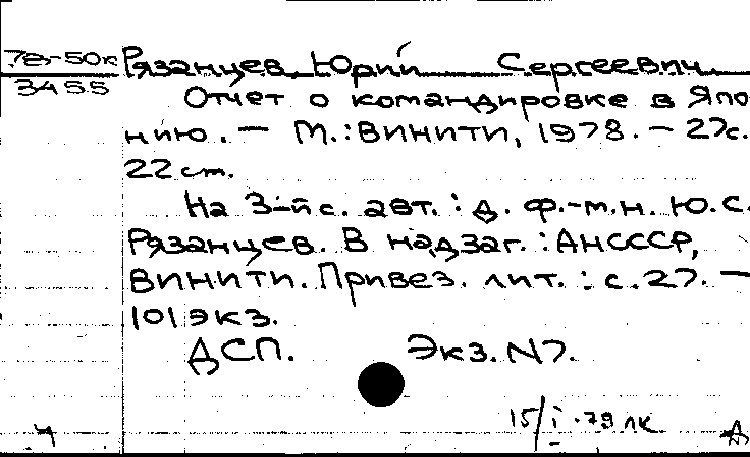 78-50к Рязанцев Юрий Сергеевич
3455
Отчет о командировке в Япо
нию. — М.: ВИНИТИ, 1978. — 27с.
22 cm.
На 3-й с. авт.: д. ф.-м.н. Ю.С.
Рязанцев. В надзаг.: АНСССР,
ВИНИТИ. Привез. лит.: с.27. —
101 экз.
ДСП. Экз. N7.
15/I-79 лк
ч А